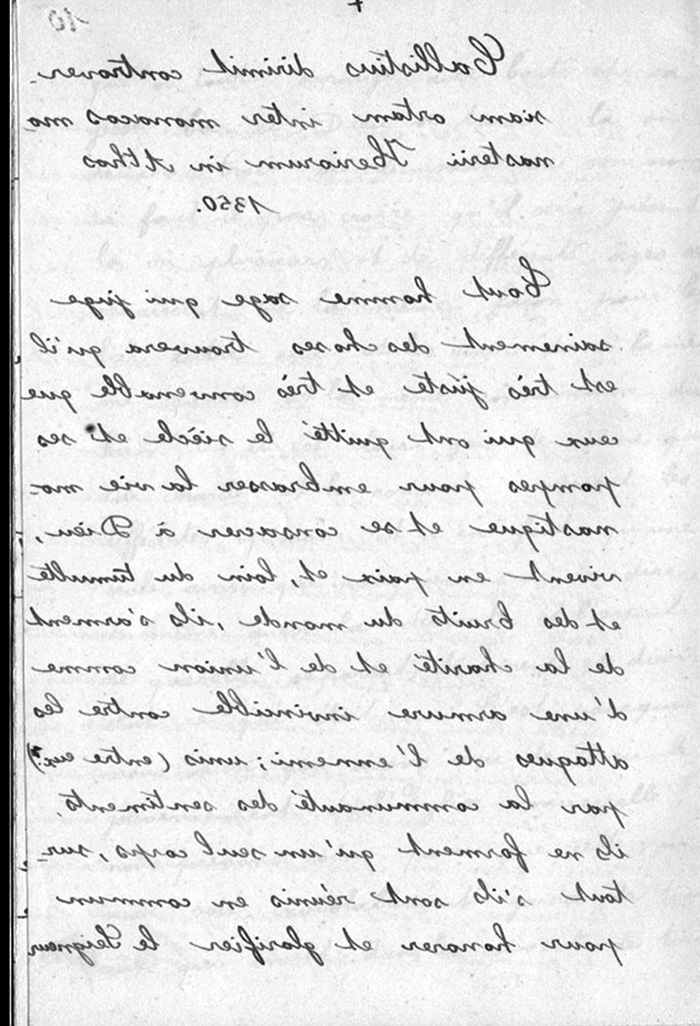 10
Callistius dirimit controver-
siam ortam inter monacos mo-
nasterii Iberiorum in Athos
1350.
Tout homme sage qui juge
sainement des choses trouvera qu'il
est très juste et très convenable que
ceux qui ont quitté le siècle et ses
pompes pour embrasser la vie mo-
nastique et se consacrer à Dieu,
vivent en paix et, loin du tumulte
et des bruits du monde, ils s'arment
de la charité et de l'union comme
d'une armure invincible contre les
attaques de l'ennemi; unis (entre eux?)
par la communauté des sentiments
ils ne forment qu'un seul corps, sur-
tout s'ils sont réunis en commun
pour honorer et glorifier le Seigneur